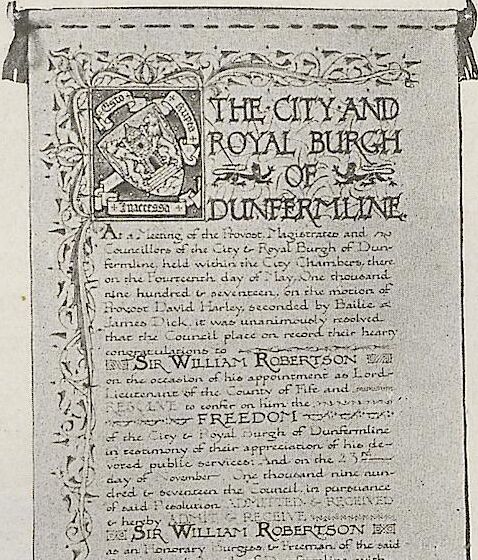 Esto rupes
inaccessa
THE · CITY · AND
ROYAL BURGH
OF
DUNFERMLINE.
At a Meeting of the Provost, Magistrates and
Councillors of the City & Royal Burgh of Dun-
fermline, held within the City Chambers, there
on the Fourteenth day of May, One thousand
nine hundred & seventeen, on the motion of
Provost David Harley, seconded by Bailie
James Dick, it was unanimously resolved
that the Council place on record their hearty
congratulations to
SIR WILLIAM ROBERTSON
on the occasion of his appointment as Lord-
Lieutenant of the County of Fife and
RESOLVE to confer on him the
FREEDOM
of the City & Royal Burgh of Dunfermline
in testimony of their appreciation of his de-
voted public services: And on the 23rd
day of November One thousand nine hun-
dred & seventeen the Council, in pursuance
of said Resolution ADMITTED & RECEIVED
& hereby ADMIT & RECEIVE
SIR WILLIAM ROBERTSON
as an Honorary Burgess & Freeman of the said